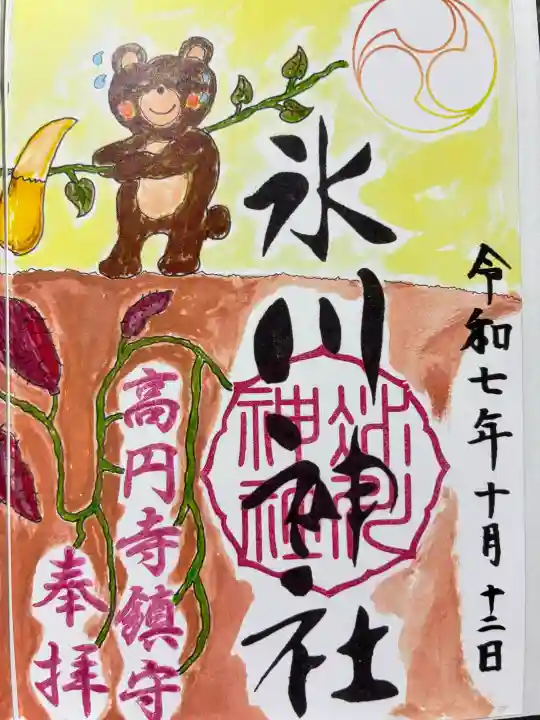 令和七年十月十二日
氷川神社
氷川神社
高円寺鎮守
奉拝